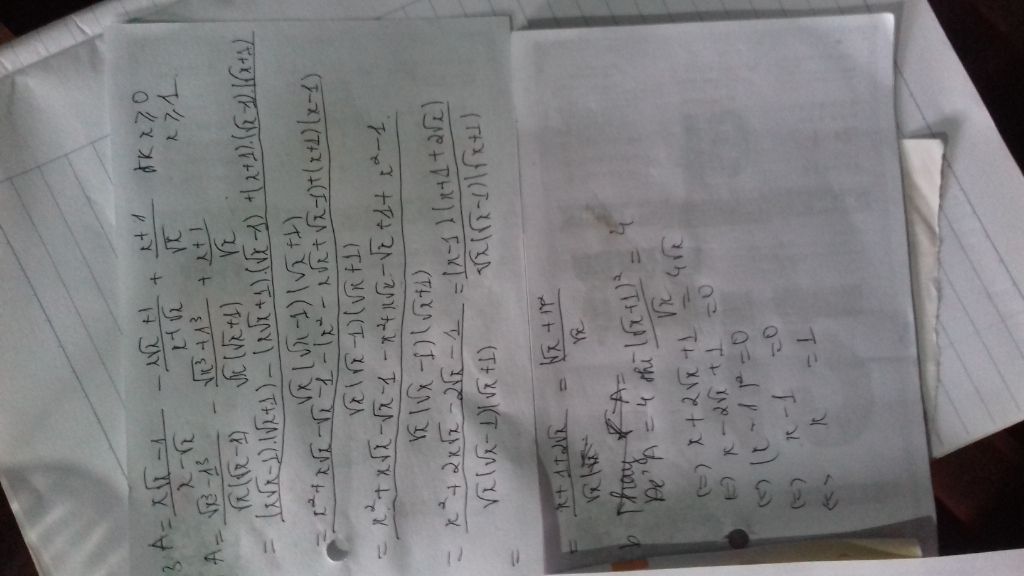 3 A = x√x - 1 / x - √x - x√x + 1 / x + √x + x + 1 / √x ĐK x ≥ 0
x ≥ 1
A = √x³ - 1³ / √x(√x - 1) - √x³ + 1³ / √x(√x + 1) + x + 1 / √x
= (x√x - 1)(√x + 1) - (x√x + 1)(√x - 1) + (x + 1)(√x - 1)(√x + 1) / √x(√x - 1)(√x + 1)
= x² + x√x - √x - 1 - (x² - x√x + √x - 1) + (x + 1)(x - 1) / √x(√x - 1)(√x + 1)
= x² + x√x - √x - 1 - x² + x√x - √x + 1 + x² - 1 / √x(√x - 1)(√x + 1)
= x² + 2x√x - 2√x - 1 / √x(√x - 1)(√x + 1) = (x - 1)(x + 1 + 2√x) / √x(√x - 1)(√x + 1)
=
= x + 1 + 2√x / √x = (√x + 1)² / √x
b
Để A = 4 thì (√x + 1)² / √x = 4
(=) x + 2√x + 1 = 4√x
(=) x - 2√x + 1 = 0
(=) (x - 1)² = 0
(=) x - 1 = 0
(=) x = 1